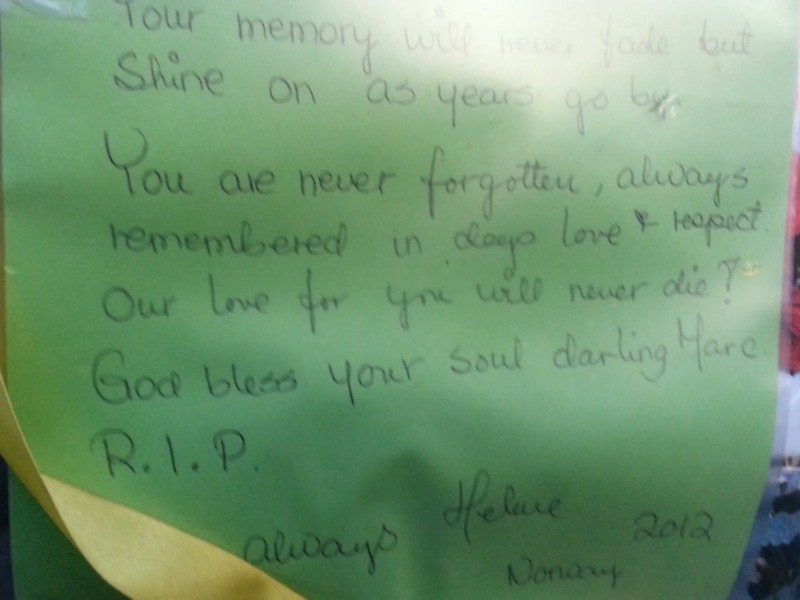 Your memory will never fade but
Shine on as years go by
You are never forgotten, always
remembered in deep love & respect.
Our love for you will never die!
God bless your soul darling Marc.
R.I.P.
always
2012
Norway